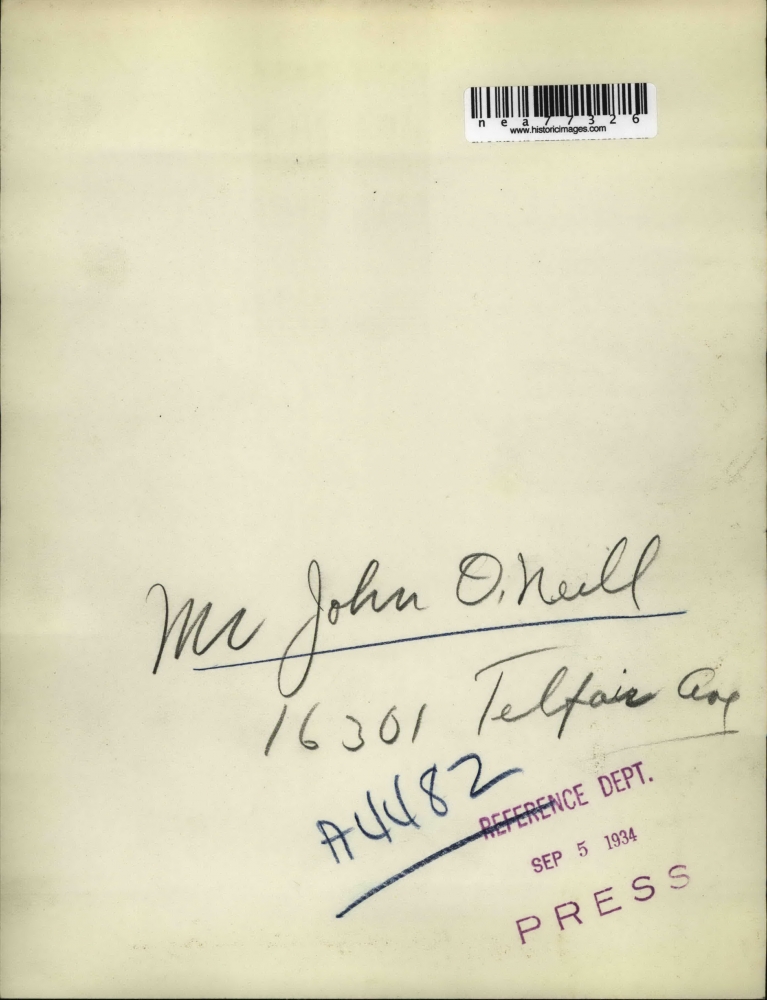 nea77326
www.historicimages.com
Mr John O'Neill
16301 Telfair Ave
A4482
REFERENCE DEPT.
SEP 5 1934
PRESS